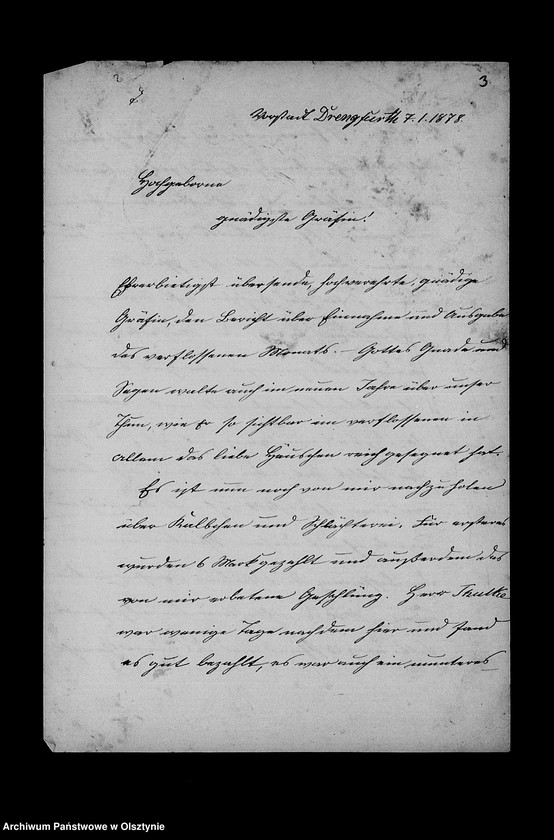 3
Vorstadt Drengfurth 7.1.1878.
Hochgeborne
gnädigste Gräfin!
Ehrerbietigst übersende, hochverehrte, gnädige
Gräfin, den Bericht über Einnahme und Ausgabe
des verflossenen Monats. – Gottes Gnade und
Segen walte auch im neuen Jahre über unser
Thun, wie Er so sichtbar im verflossenen in
Allem das liebe Häuschen reich gesegnet hat.
Es ist nun noch von mir nachzuholen
über Kälbchen und Schlächterei. Für ersteres
wurden 6 Mark gezahlt und außerdem das
von mir erbetene Geschlüng. Herr
war wenige Tage nachdem hier und fand
es gut bezahlt, es war auch ein munteres
Archiwum Państwowe w Olsztynie